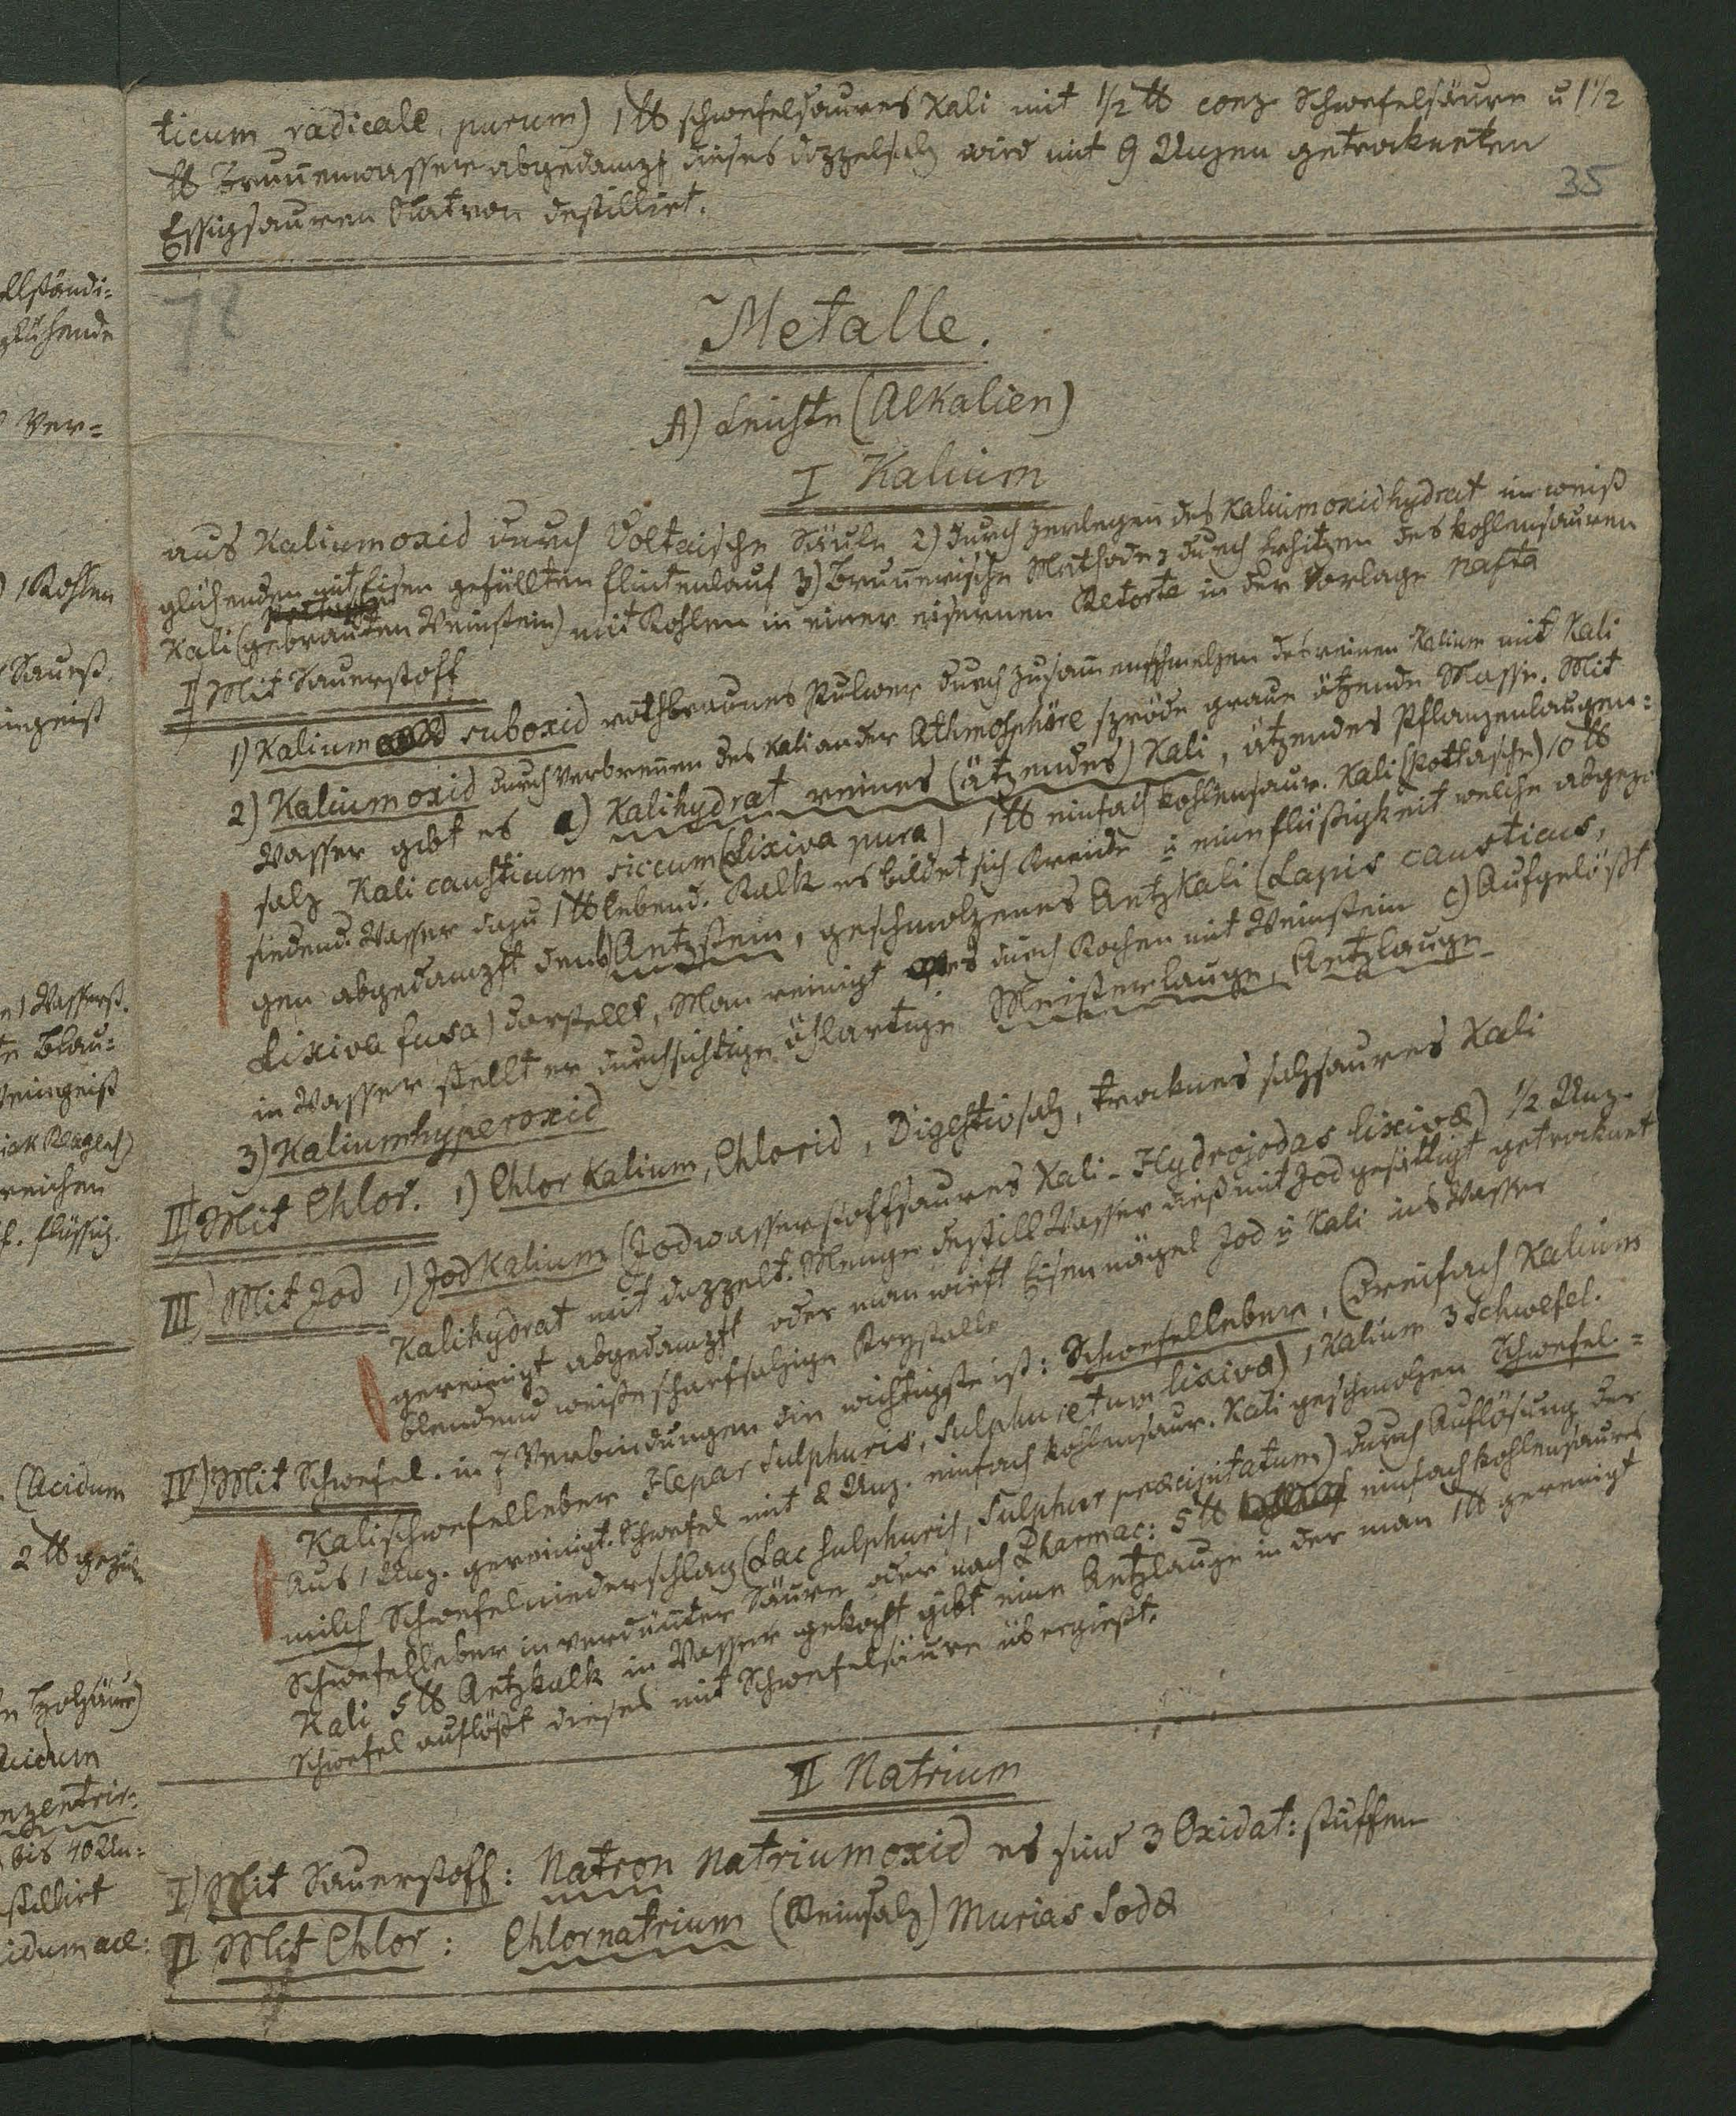 ticum radicale, purum) 1 ℔ schwefelsaures Kali mit 1/2 ℔ conz Schwefelsäure u 1 1/2
℔ Brun̄enwasser abgedampf dieses doppelsalz wird mit 9 Unzen getrockneten
Essigsauren Natron destillirt.
35
72
Metalle.
A) Leichte (Alkalien)
I Kalium
aus Kaliumoxid durch Voltaische Säule 2) durch zerlegen des Kaliumoxidhydrat in weiß
glühenden mit Eisen gefüllten Flintenlauf 3) Brun̄erische Methode durch Erhitzen des kohlensauren
Kali (gebran̄ten Weinstein) mit Kohlen in einer eisernen Retorte in der Vorlage Nafta
I) Mit Sauerstoff
1) Kalium suboxid rothbraunes Pulver durch zusam̄enschmelzen des reinen Kalium mit Kali
2) Kaliumoxid durch Verbren̄en des Kali an der Athmosphäre spröde graue ätzende Masse. Mit
Wasser gibt es a) Kalihydrat reines (ätzendes) Kali, ätzendes Pflanzenlaugen=
salz Kali causticum siccum (Lixiva pura) 1 ℔ einfach kohlensaur. Kali (Pottasche) 10 ℔
siedend. Wasser dazu 1 ℔ lebend. Kalk es bildet sich Kreide u eine flüßigkeit welche abgezo
gen abgedampft den b) Aetzstein, geschmolzenes Aetzkali (Lapis causticus,
Lixiva fusa) darstellt, Man reinigt es durch Kochen mit Weinstein c) Aufgelößt
in Wasser stellt er durchsichtige öhlartige Meisterlauge, Aetzlauge
3) Kaliumhyperoxid
II) Mit Chlor. 1) Chlor Kalium, Chlorid, Digestivsalz, trocknes salzsaures Kali
III) Mit Jod 1) Jod Kalium (Jodwasserstoffsaures Kali - Hydrojodas lixivæ) 1/2 Unz.
Kalihydrat mit doppelt. Menge destill Wasser dieß mit Jod gesättigt getrocknet
gereinigt abgedampft oder man wirft Eisennägel Jod u Kali ins Wasser
blendend weiße scharfsalzige Krystalle
IV) Mit Schwefel. in 7 Verbindungen die wichtigste ist: Schwefelleber, (Dreifach Kalium
Kalischwefelleber Hepar sulphuris, Sulphuretum lixivæ) 1 Kalium 3 Schwefel.
Aus 1 Unz. gereinigt. Schwefel mit 2 Unz. einfach kohlensaur. Kali geschmolzen Schwefel=
milch Schwefelniederschlag (Lac sulphuris, Sulphur præcipitatum) durch Auflösung der
Schwefelleber in verdün̄ter Säure oder nach Pharmac: 5 ℔ einfach kohlensaures
Kali 5 ℔ Aetzkalk in Wasser gekocht gibt eine Aetzlauge in der man 1 ℔ gereinigt
Schwefel auflößt dieses mit Schwefelsäure übergießt.
II Natrium
I) Mit Sauerstoff: Natron Natriumoxid es sind 3 Oxidat: stuffen
II Mit Chlor: Chlornatrium (Steinsalz) Murias Sodæ
llständi=
glühende
Ver=
) 1 Kohlen
Sauerst.
ingeist
1 Wasserst.
te Blau=
Weingeist
reichen
f. flüssig.
(Acidum
2 ℔
Holzsäure)
Acidum
onzentrir:
bis 40 Un=
stillirt
idum ace: